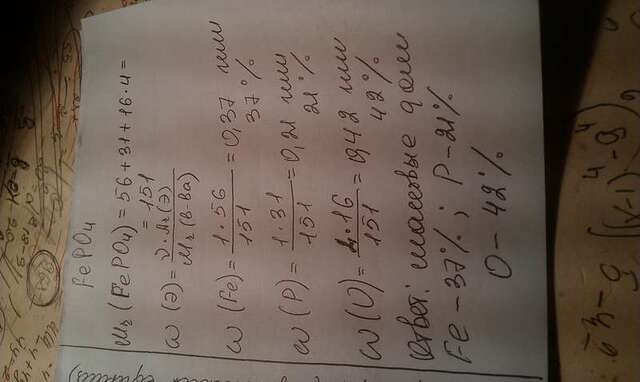 FePO₄
Mr (FePO₄) = 56+31+16·4=
= 151
ω (Э) = ν·Ar(Э) / Mr(в-ва)
ω (Fe) = 1·56 / 151 = 0,37 или
37%
ω (P) = 1·31 / 151 = 0,21 или
21%
ω (O) = 4·16 / 151 = 0,42 или
42%
Ответ: массовые доли
Fe – 37%; P – 21%
O – 42%